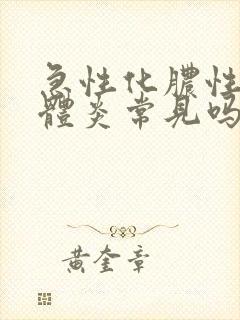 急性化膿性
體炎常見嗎
黃奎章